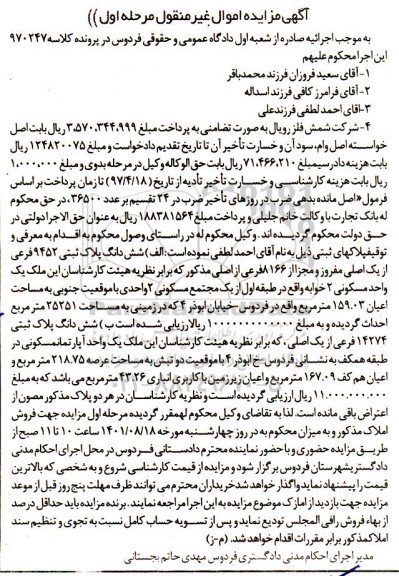 آگهی مزایده اموال غیر منقول مرحله اول))
به موجب اجرائیه صادره از شعبه اول دادگاه عمومی و حقوقی فردوس در پرونده کلاسه ۹۷۰۲۴۷
این اجرا محکوم علیهم
۱- آقای سعید فروزان فرزند محمدباقر
۲- آقای فرامرز کافی فرزند اسداله
۳- اقای احمد لطفی فرزند علی
۴- شرکت شمش فلز رویال به صورت تضامنی به پرداخت مبلغ ۳,۵۷۰,۳۴۴,۹۹۹ ریال بابت اصل
خواسته اصل وام، سود آن و خسارت تأخیر آن تا تاریخ تقدیم دادخواست و مبلغ ۱۲۴۸۲۰۰۷۵ ریال
بابت هزینه دادرسی مبلغ ۷۱,۴۶۶,۲۱۰ ریال بابت حق الوکاله وکیل در مرحله بدوی و مبلغ ۱,۰۰۰,۰۰۰
ریال بابت هزینه کارشناسی و خسارت تأخیر تأدیه از تاریخ (۹۷/۴/۱۸) تا زمان پرداخت بر اساس
فرمول «اصل مانده بدهی ضرب در روزهای تأخیر ضرب در ۲۴ تقسیم بر عدد ۳۶۵۰۰ در حق محکوم
له بانک تجارت با وکالت خانم جلیلی و پرداخت مبلغ ۱۸۸۳۸۱۵۶۴ ریال به عنوان حق الاجرا دولتی در
حق دولت محکوم گردیده اند. وکیل محکوم له در راستای وصول محکوم به اقدام به معرفی و
توقیف پلاکهای ثبتی ذیل به نام آقای احمد لطفی نموده است: الف) شش دانگ پلاک ثبتی ۹۴۵۲ فرعی
از یک اصلی مفروز و مجزا از ۸۱۶۶ فرعی از اصلی مذکور که برابر نظریه هیئت کارشناسان این ملک یک
واحد مسکونی ۲ خوابه واقع در طبقه اول از یک مجتمع مسکونی ۲ واحدی با موقعیت جنوبی به مساحت
اعیان ۱۵۹.۰۳ مترمربع واقع در فردوس -خیابان ابوذر ۴ که در زمینی به مساحت ۲۵۲۵۱ متر مربع
احداث گردیده و به مبلغ ۱۰۰۰۰۰۰۰۰۰۰ ریال ارزیابی شده است ب) شش دانگ پلاک ثبتی
۱۴۲۷۴ فرعی از یک اصلی، که برابر نظریه هیئت کارشناسان این ملک یک واحد آپارتمان مسکونی در
طبقه همکف به نشانی فردوس -خ ابوذر ۴ با موقعیت دو نبش به مساحت عرصه ۲۱۸.۷۵ متر مربع و
اعیان هم کف ۱۶۷.۰۹ متر مربع و اعیان زیرزمین با کاربری انباری ۴۳.۲۶ متر مربع می باشد که به مبلغ
۱۱,۰۰۰,۰۰۰,۰۰۰ ریال ارزیابی گردیده است و نظریه کارشناسان در هر دو پلاک مذکور مصون از
اعتراض باقی مانده است. لذا به تقاضای وکیل محکوم لهم مقرر گردیده مرحله اول مزایده جهت فروش
املاک مذکور و به میزان محکوم به در روز چهارشنبه مورخه ۱۴۰۱/۰۸/۱۸ ساعت ۱۰ تا ۱۱ صبح از
طریق مزایده حضوری و با حضور نماینده محترم دادستانی فردوس در محل اجرای احکام مدنی
دادگستر شهرستان فردوس برگزار شود و مزایده از قیمت کارشناسی شروع و به شخصی که بالاترین
قیمت را پیشنهاد نماید واگذار خواهد شد خریداران محترم می توانند ظرف مهلت پنج روز قبل از موعد
مزایده جهت بازدید از املاک موضوع مزایده به این اجرا مراجعه نمایند. برنده مزایده باید حداقل ده درصد
از بهاء فروش را فی المجلس تودیع نماید و پس از تسویه حساب کامل نسبت به تحوی و تنظیم سند
املاک مذکور برابر مقررات اقدام خواهد شد. (م-ز)
مدیر اجرای احکام مدنی دادگستری فردوس مهدی حاتم بجستانی